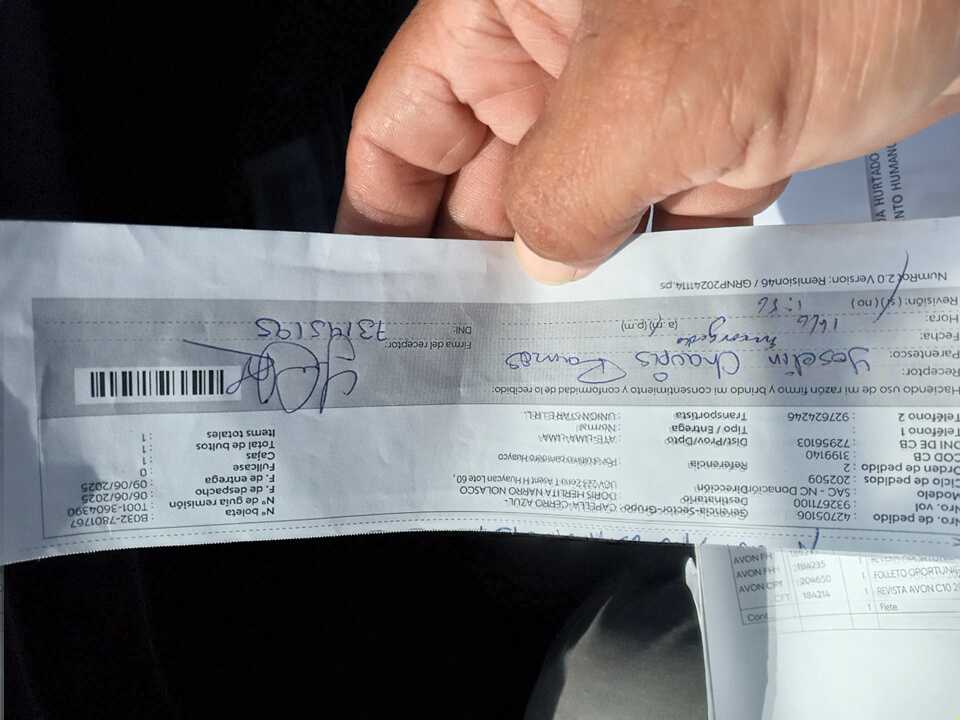 Nro. de pedido : 42705106
Nro. vol : 93267100
Modelo : SAC - NC Donación
Ciclo de pedidos : 202509
Orden de pedido : 2
COD CB : 3199140
DNI DE CB : 72956103
Teléfono 1 :
Teléfono 2 : 927624246
Gerencia-Sector-Grupo : CAPELLA-CERRO AZUL-
Destinatario : DORIS HERLITA NARRO NOLASCO
Dirección : UCV 223 Zon T Asent H Huaycan Lote 60,
Referencia : Huayco
Dist/Prov/Dpto : ATE-LIMA-LIMA
Tipo / Entrega : Normal
Transportista : UNION STAR E.I.R.L.
Nº boleta : B032-7801767
Nº de guía remisión : T001-3604390
F. de despacho : 06/06/2025
F. de entrega : 09/06/2025
Fullcase : 0
Cajas : 1
Total de bultos : 1
Items totales : 1
Haciendo uso de mi razón firmo y brindo mi consentimiento y conformidad de lo recibido:
Receptor: Yoselin Chaupis Ramos
Parentesco: Encargada
Fecha:
Hora: (a.m) (p.m)
Revisión: (si) (no)
Firma del receptor:
DNI: 73145195
NumRot 2.0 Version: Remision46 / GRNP20241114.ps
A HURTADO
NTO HUMANO
AVON FH : 184235 1 FOLLETO OPORTUN
AVON CPY : 204650 1 REVISTA AVON C10 2
CFT : 184214 1 Flete
Cont